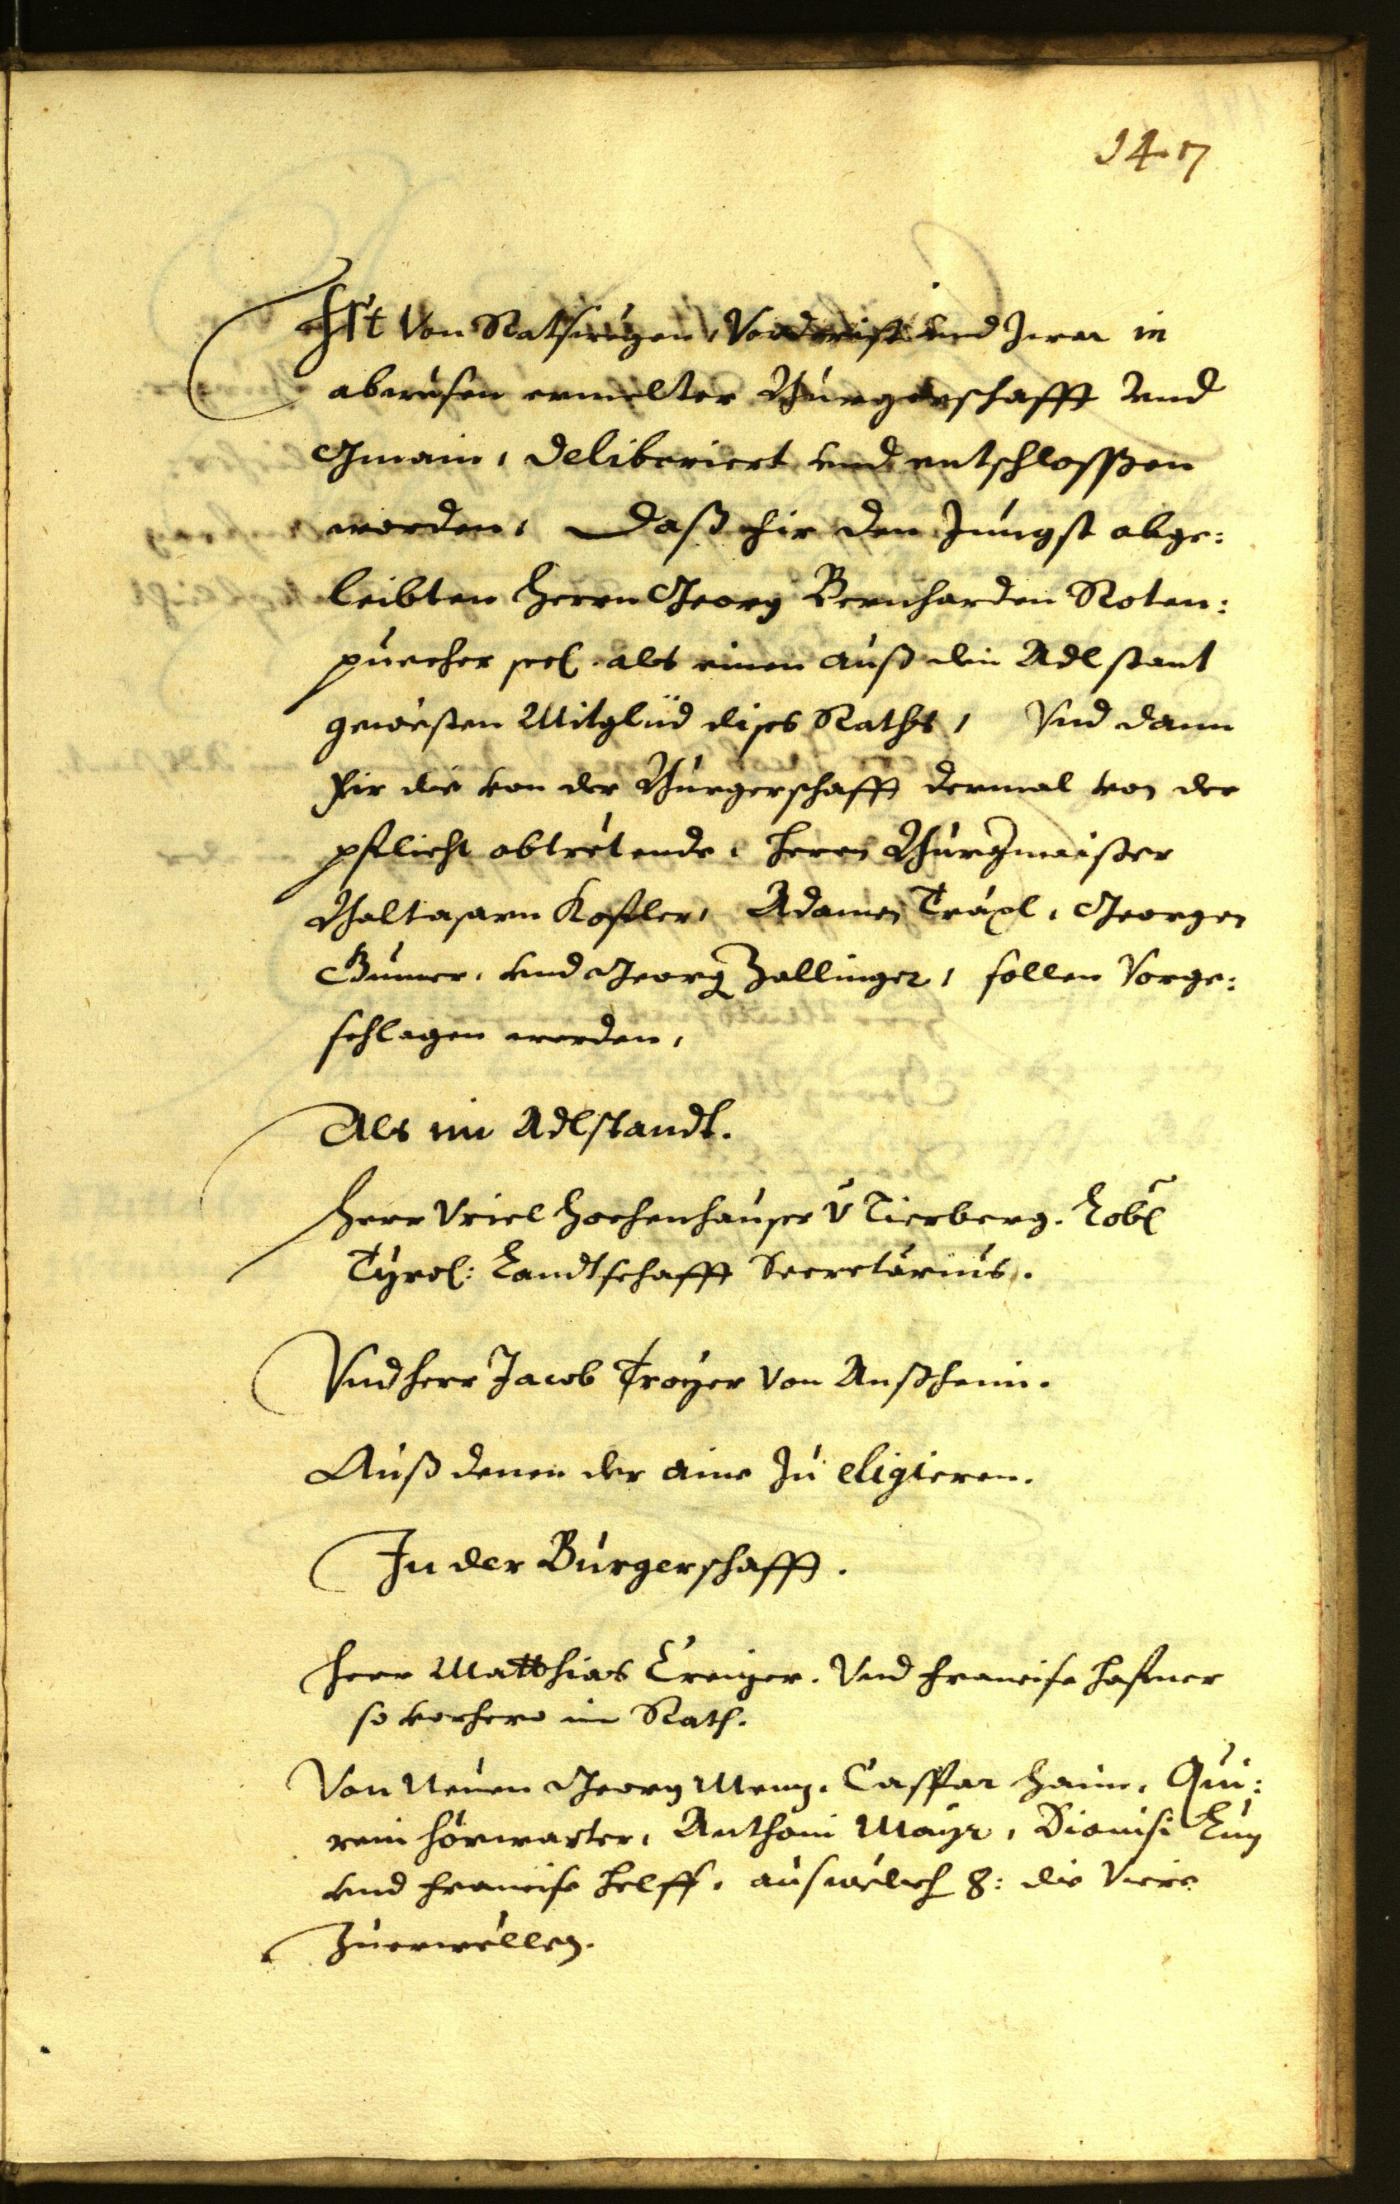 147
Ist Von Rats wegen, Vorderist und zwar in
abwesen ermelter Burgerschafft Und
Gmain, deliberiert und entschlossen
worden, Daß hir den Jungst abge:
leibten Herrn Georg Bernharden Roten:
puecher seel. als einen auß den Adlstant
gewesten Mitglüd dises Raths, Und dann
für die von der Burgerschafft dermal von der
pflicht abtretende, Herrn Burgmaister
Baltasarn Kofler, Adamen Träxl, Georgen
Gumer, und Georg Zallinger, sollen Vorge:
schlagen werden,
Als im Adlstandt.
Herr Uriel Hochenhauser v Tierberg. Lobl
Tyrol: Landtschafft Secretarius.
Und Herr Jacob Troyer Von Außheim.
Auß denen der aine zu eligieren.
In der Burgerschafft.
Herr Matthias Creizer. Und Francisc Hafner
so vorhero im Rath.
Von Neuen Georg Menz, Casspar Haim, Qui:
rein Hörwarter, Anthoni Mayr, Dionisi Lun
und Francisc Helff. aus welch 8: die Viere
zuerwellen.